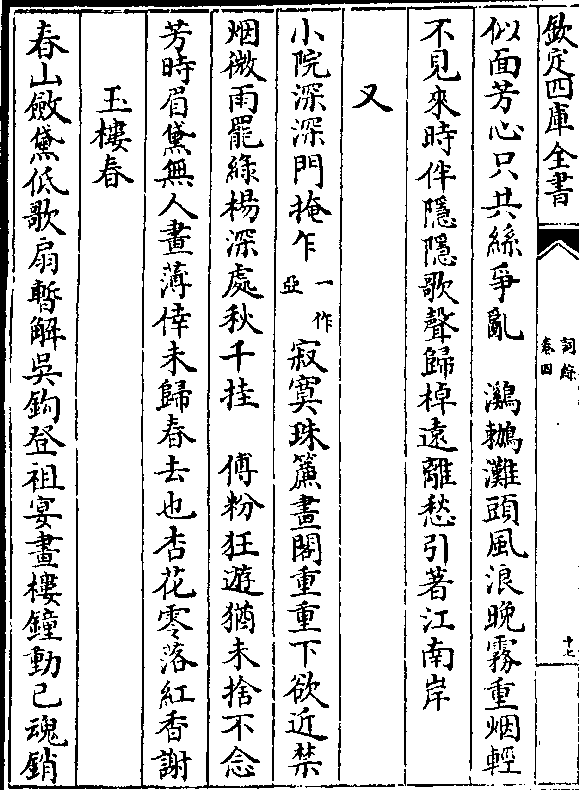 欽定四庫全書
詞綜
卷四
十七
似面芳心只共絲爭亂　鸂鶒灘頭風浪晚霧重烟輕
不見來時伴隱隱歌聲歸棹遠離愁引著江南岸
又
小院深深門掩乍一作亞寂寞珠簾畫閣重重下欲近禁
烟微雨罷綠楊深處秋千挂　傅粉狂遊猶未捨不念
芳時眉黛無人畫薄倖未歸春去也杏花零落紅香謝
玉樓春
春山斂黛低歌扇暫解吳鉤登祖宴畫樓鐘動已魂銷